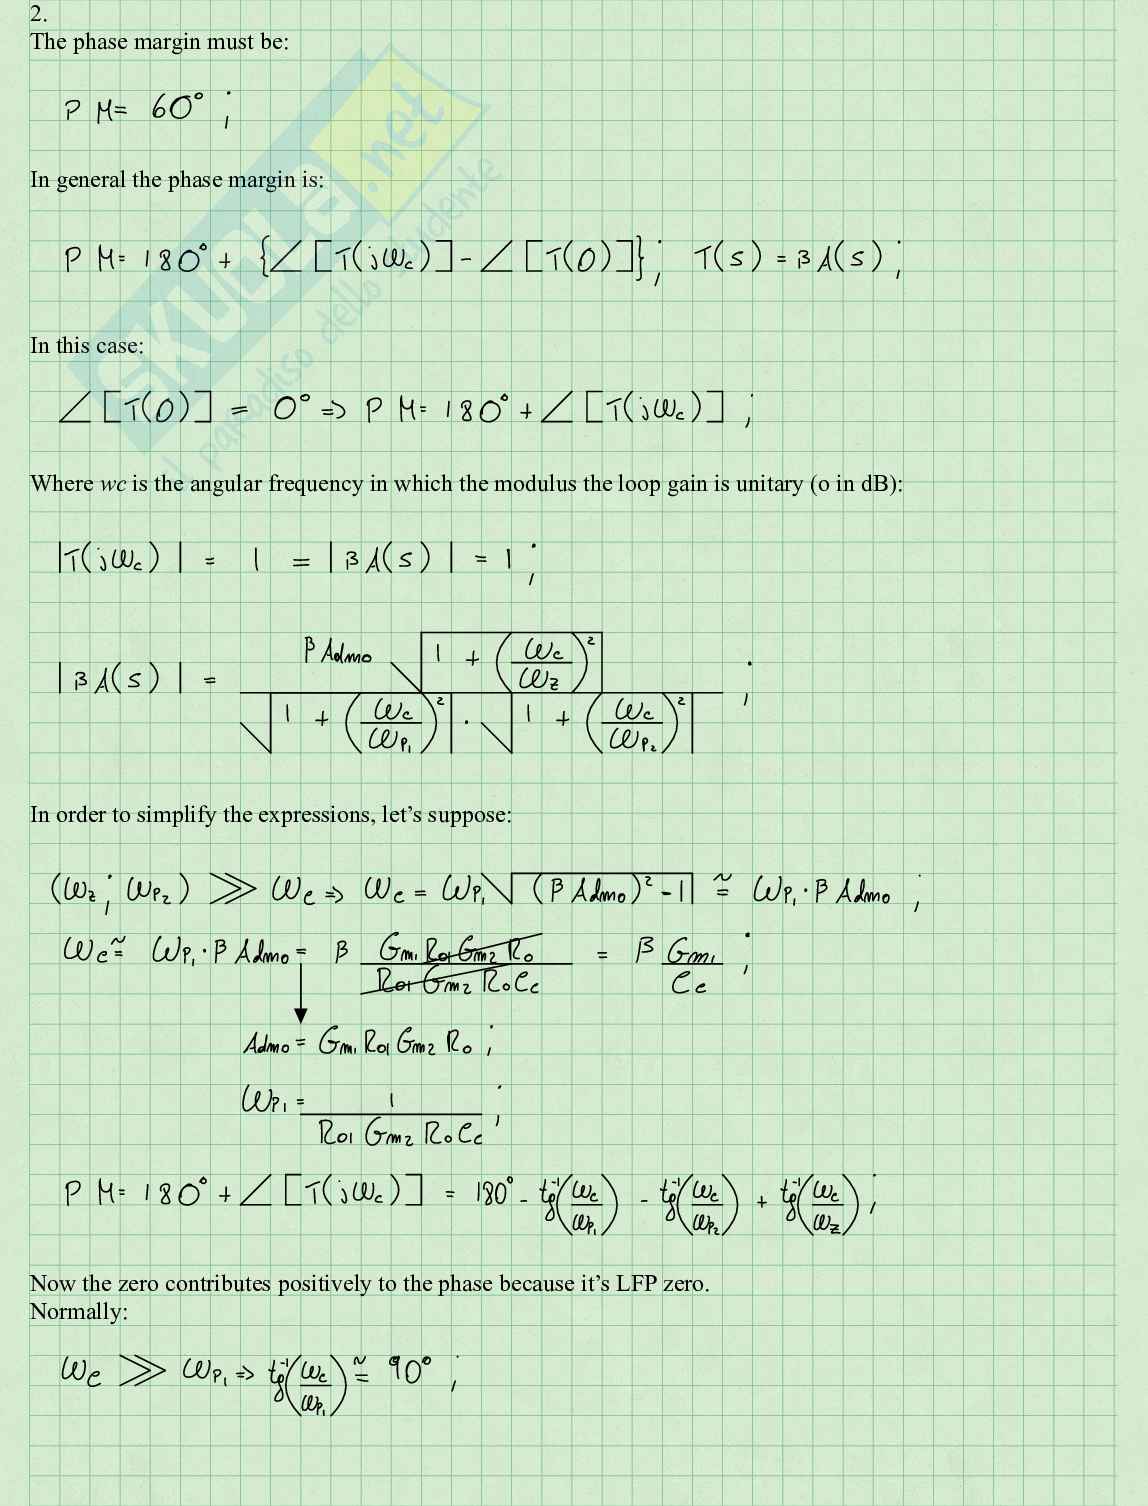 2.
The phase margin must be:
PM= 60° ;
In general the phase margin is:
PM= 180° + {∠[T(jωc)] - ∠[T(0)]}; T(s) = βA(s) ;
In this case:
∠[T(0)] = 0° => PM= 180° + ∠[T(jωc)] ;
Where wc is the angular frequency in which the modulus the loop gain is unitary (o in dB):
|T(jωc)| = 1 = |βA(s)| = 1 ;
|βA(s)| = β Admo √(1 + (ωc/ωz)²) / √(1 + (ωc/ωp1)²) · √(1 + (ωc/ωp2)²) ;
In order to simplify the expressions, let's suppose:
(ωz ; ωp2) >> ωc => ωc = ωp1 √((β Admo)² - 1) ≅ ωp1 · β Admo ;
ωc ≅ ωp1 · β Admo = β Gm1 Ro1 Gm2 Ro / Ro1 Gm2 Ro Cc = β Gm1 / Cc ;
Admo = Gm1 Ro1 Gm2 Ro ;
ωp1 = 1 / Ro1 Gm2 Ro Cc ;
PM= 180° + ∠[T(jωc)] = 180° - tg⁻¹(ωc/ωp1) - tg⁻¹(ωc/ωp2) + tg⁻¹(ωc/ωz) ;
Now the zero contributes positively to the phase because it's LFP zero.
Normally:
ωc >> ωp1 => tg⁻¹(ωc/ωp1) ≅ 90° ;
SKUOLA.net
il paradiso dello studente